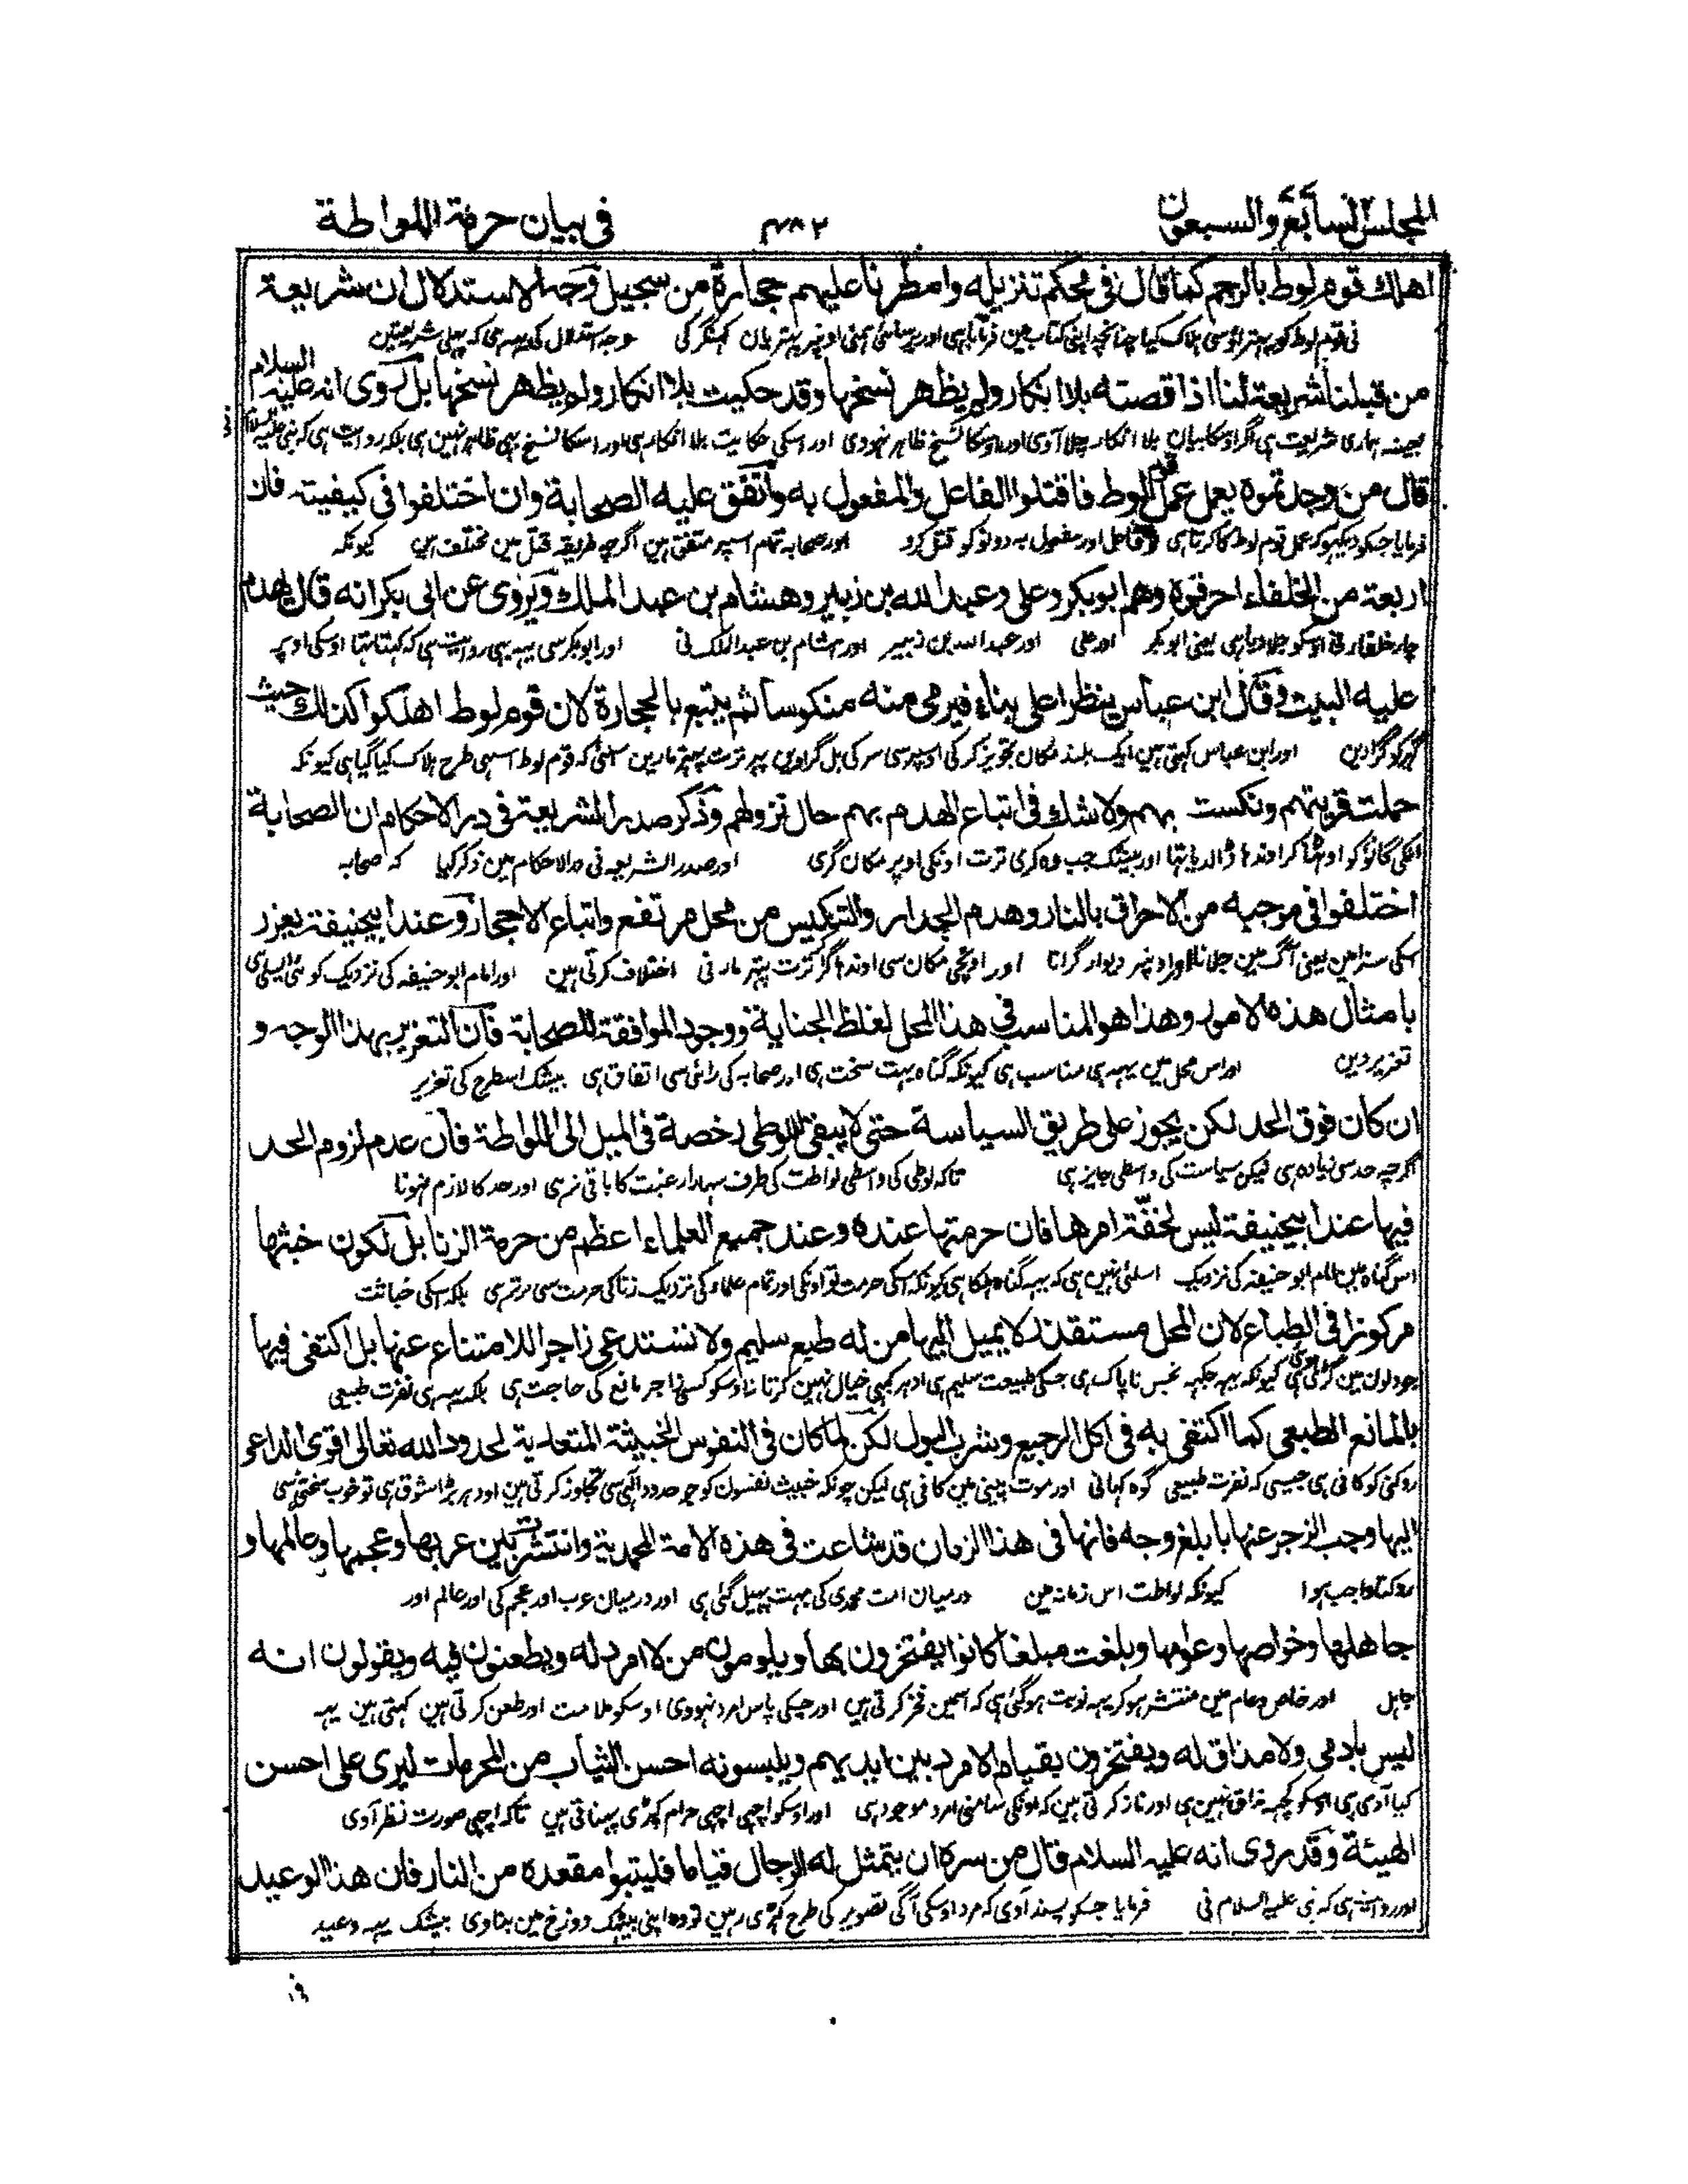 المجلس السابع والسبعون
۴۸۲
فی بیان حرمة اللواطة
اهلك قوم لوط بالرجم كما قال فی محكم تنزیله وامطرنا علیهم حجارة من سجیل وجه الاستدلال ان شریعة
نی قوم لوط کو پتهراؤ سی ہلاک کیا چنانچہ اپنی کتاب مین فرمایا ہی اور برسائی ہمنی اونپر پتهریان کهنگر کی وجہ استدلال کی یہہ ہی کہ پہلی شریعتین
من قبلنا شریعة لنا اذا قصته بلا انكار ولم یظهر نسخها وقد حكیت بلا انكار ولم یظهر نسخها بل روی انه علیه السلام
بعینہ ہماری شریعت ہی اگر اوسکا بیان بلا انکار چلا آوی اور اوسکا نسخ ظاہر نہووی اور اسکی حکایت بلا انکار ہی اور اسکا نسخ بهی ظاہر نہین ہی بلکہ روایت ہی کہ نبی علیہ السلام نی
قال من وجدتموه یعمل عمل قوم لوط فاقتلوا الفاعل والمفعول به واتفق علیه الصحابة وان اختلفوا فی كیفیته فان
فرمایا جسکو دیکهو کہ عمل قوم لوط کا کرتا ہی تو فاعل اور مفعول بہ دونو کو قتل کرو اور صحابہ تمام اسپر متفق ہین اگرچہ طریقہ قتل مین مختلف ہین کیونکہ
اربعة من الخلفاء احرقوه وهم ابو بكر وعلی وعبد الله بن زبیر وهشام بن عبد الملك ویروی عن ابی بكر انه قال یهدم
چار خلفاء نی اوسکو جلا دیا ہی یعنی ابو بکر اور علی اور عبد اللہ بن زبیر اور ہشام بن عبد الملک نی اور ابوبکر سی یہہ بهی روایت ہی کہ کہتا تها اوسکی اوپر
علیه البیت وقال ابن عباس ینظر اعلی بناء فیرمی منه منكوسا ثم یتبع بالحجارة لان قوم لوط اهلكوا كذلك حیث
گهر کو گرا دین اور ابن عباس کہتی ہین ایک بلند مکان تجویز کر کی اوسپر سی سر کی بل گراوین پهر ترت پتهر مارین اسلئی کہ قوم لوط اسی طرح ہلاک کیا گیا ہی کیونکہ
حملت قریتهم ونكست بهم ولا شك فی اتباع الهدم بهم حال نزولهم وذكر صدر الشریعة فی درر الاحكام ان الصحابة
انکی گانؤ کو اوٹها کر اوندها ڈالدیا تها اور بیشک جب وہ گری ترت اونکی اوپر مکان گری اور صدر الشریعہ نی درر الاحکام مین ذکر کیا کہ صحابہ
اختلفوا فی موجبه من الاحراق بالنار وهدم الجدار والتنكیس من محل مرتفع واتباع الاحجار وعند ابیحنیفة یعزر
اسکی سزا مین یعنی آگ مین جلانا اور اونپر دیوار گرانا اور اونچی مکان سی اوندها گرا کر ترت پتهر مارنی اختلاف کرتی ہین اور امام ابو حنیفہ کی نزدیک کوئی ایسی ہی
بامثال هذه الامور وهذا هو المناسب فی هذا المحل لغلظ الجنایة ووجود الموافقة للصحابة فان التعزیر بهذا الوجه و
تعزیر دین اور اس محل مین یہہ ہی مناسب ہی کیونکہ گناہ بہت سخت ہی اور صحابہ کی رائی سی اتفاق ہی بیشک اسطرح کی تعزیر
ان كان فوق الحد لكن یجوز علی طریق السیاسة حتی لا یبقی للوطی رخصة فی المیل الی اللواطة فان عدم لزوم الحد
اگرچہ حد سی زیادہ ہی لیکن سیاست کی واسطی جایز ہی تاکہ لوطی کی واسطی لواطت کی طرف سہارا رغبت کا باقی نرہی اور حد کا لازم نہونا
فیها عند ابیحنیفة لیس لخفة امرها فان حرمتها عنده وعند جمیع العلماء اعظم من حرمة الزنا بل لكون خبثها
اس گناہ مین امام ابو حنیفہ کی نزدیک اسلئی نہین ہی کہ یہہ گناہ ہلکا ہی کیونکہ اسکی حرمت تو اونکی اور تمام علماء کی نزدیک زنا کی حرمت سی برتر ہی بلکہ اسکی خباثت
مركوزا فی الطباع لان المحل مستقذر لا یمیل الیها من له طبع سلیم ولا تستدعی زاجرا للامتناع عنها بل اكتفی فیها
جو دلون مین گڑی ہوئی ہی کیونکہ یہہ جگہہ نجس ناپاک ہی جسکی طبیعت سلیم ہی ادہر کبهی خیال نہین کرتا نہ اوسکو کسی زاجر مانع کی حاجت ہی بلکہ یہہ ہی نفرت طبیعی
بالمانع الطبعی كما اكتفی به فی اكل الرجیع وشرب البول لكن لما كان فی النفوس الخبیثة المتعدیة لحدود الله تعالی اقوی الداعو
روکنی کو کافی ہی جیسی کہ نفرت طبیعی گوہ کهانی اور موت پینی مین کافی ہی لیکن چونکہ خبیث نفسون کو جو حدود الٰہی سی تجاوز کرتی ہین اودہر بڑا شوق ہی تو خوب سختی سی
الیها وجب الزجر عنها بابلغ وجه فانها فی هذا الزمان قد شاعت فی هذه الامة المحمدیة وانتشرت بین عربها وعجمها وعالمها و
روکنا واجب ہوا کیونکہ لواطت اس زمانہ مین درمیان امت محمدی کی بہت پهیل گئی ہی اور درمیان عرب اور عجم کی اور عالم اور
جاهلها وخواصها وعوامها وبلغت مبلغا كانوا یفتخرون بها ویلومون من لا امرد له ویطعنون فیه ویقولون انه
جاہل اور خاص و عام مین منتشر ہو کر یہہ نوبت ہو گئی ہی کہ اسمین فخر کرتی ہین اور جسکی پاس امرد نہووی اوسکو ملامت اور طعن کرتی ہین کہتی ہین یہہ
لیس بادمی ولا مذاق له ویفتخرون بقیام الامرد بین ایدیهم ویلبسونه احسن الثیاب من المحرمات لیری علی احسن
کیا آدمی ہی اوسکو کچهہ مذاق نہین ہی اور ناز کرتی ہین کہ اونکی سامنی امرد موجود ہی اور اوسکو اچهی اچهی حرام کپڑی پہناتی ہین تاکہ اچهی صورت نظر آوی
الهیئة وقد روی انه علیه السلام قال من سره ان یتمثل له الرجال قیاما فلیتبوأ مقعده من النار فان هذا الوعید
اور روایت ہی کہ نبی علیہ السلام نی فرمایا جسکو پسند آوی کہ مرد اوسکی آگی تصویر کی طرح کهڑی رہین تو وہ اپنی بیٹهک دوزخ مین بناوی بیشک یہہ وعید